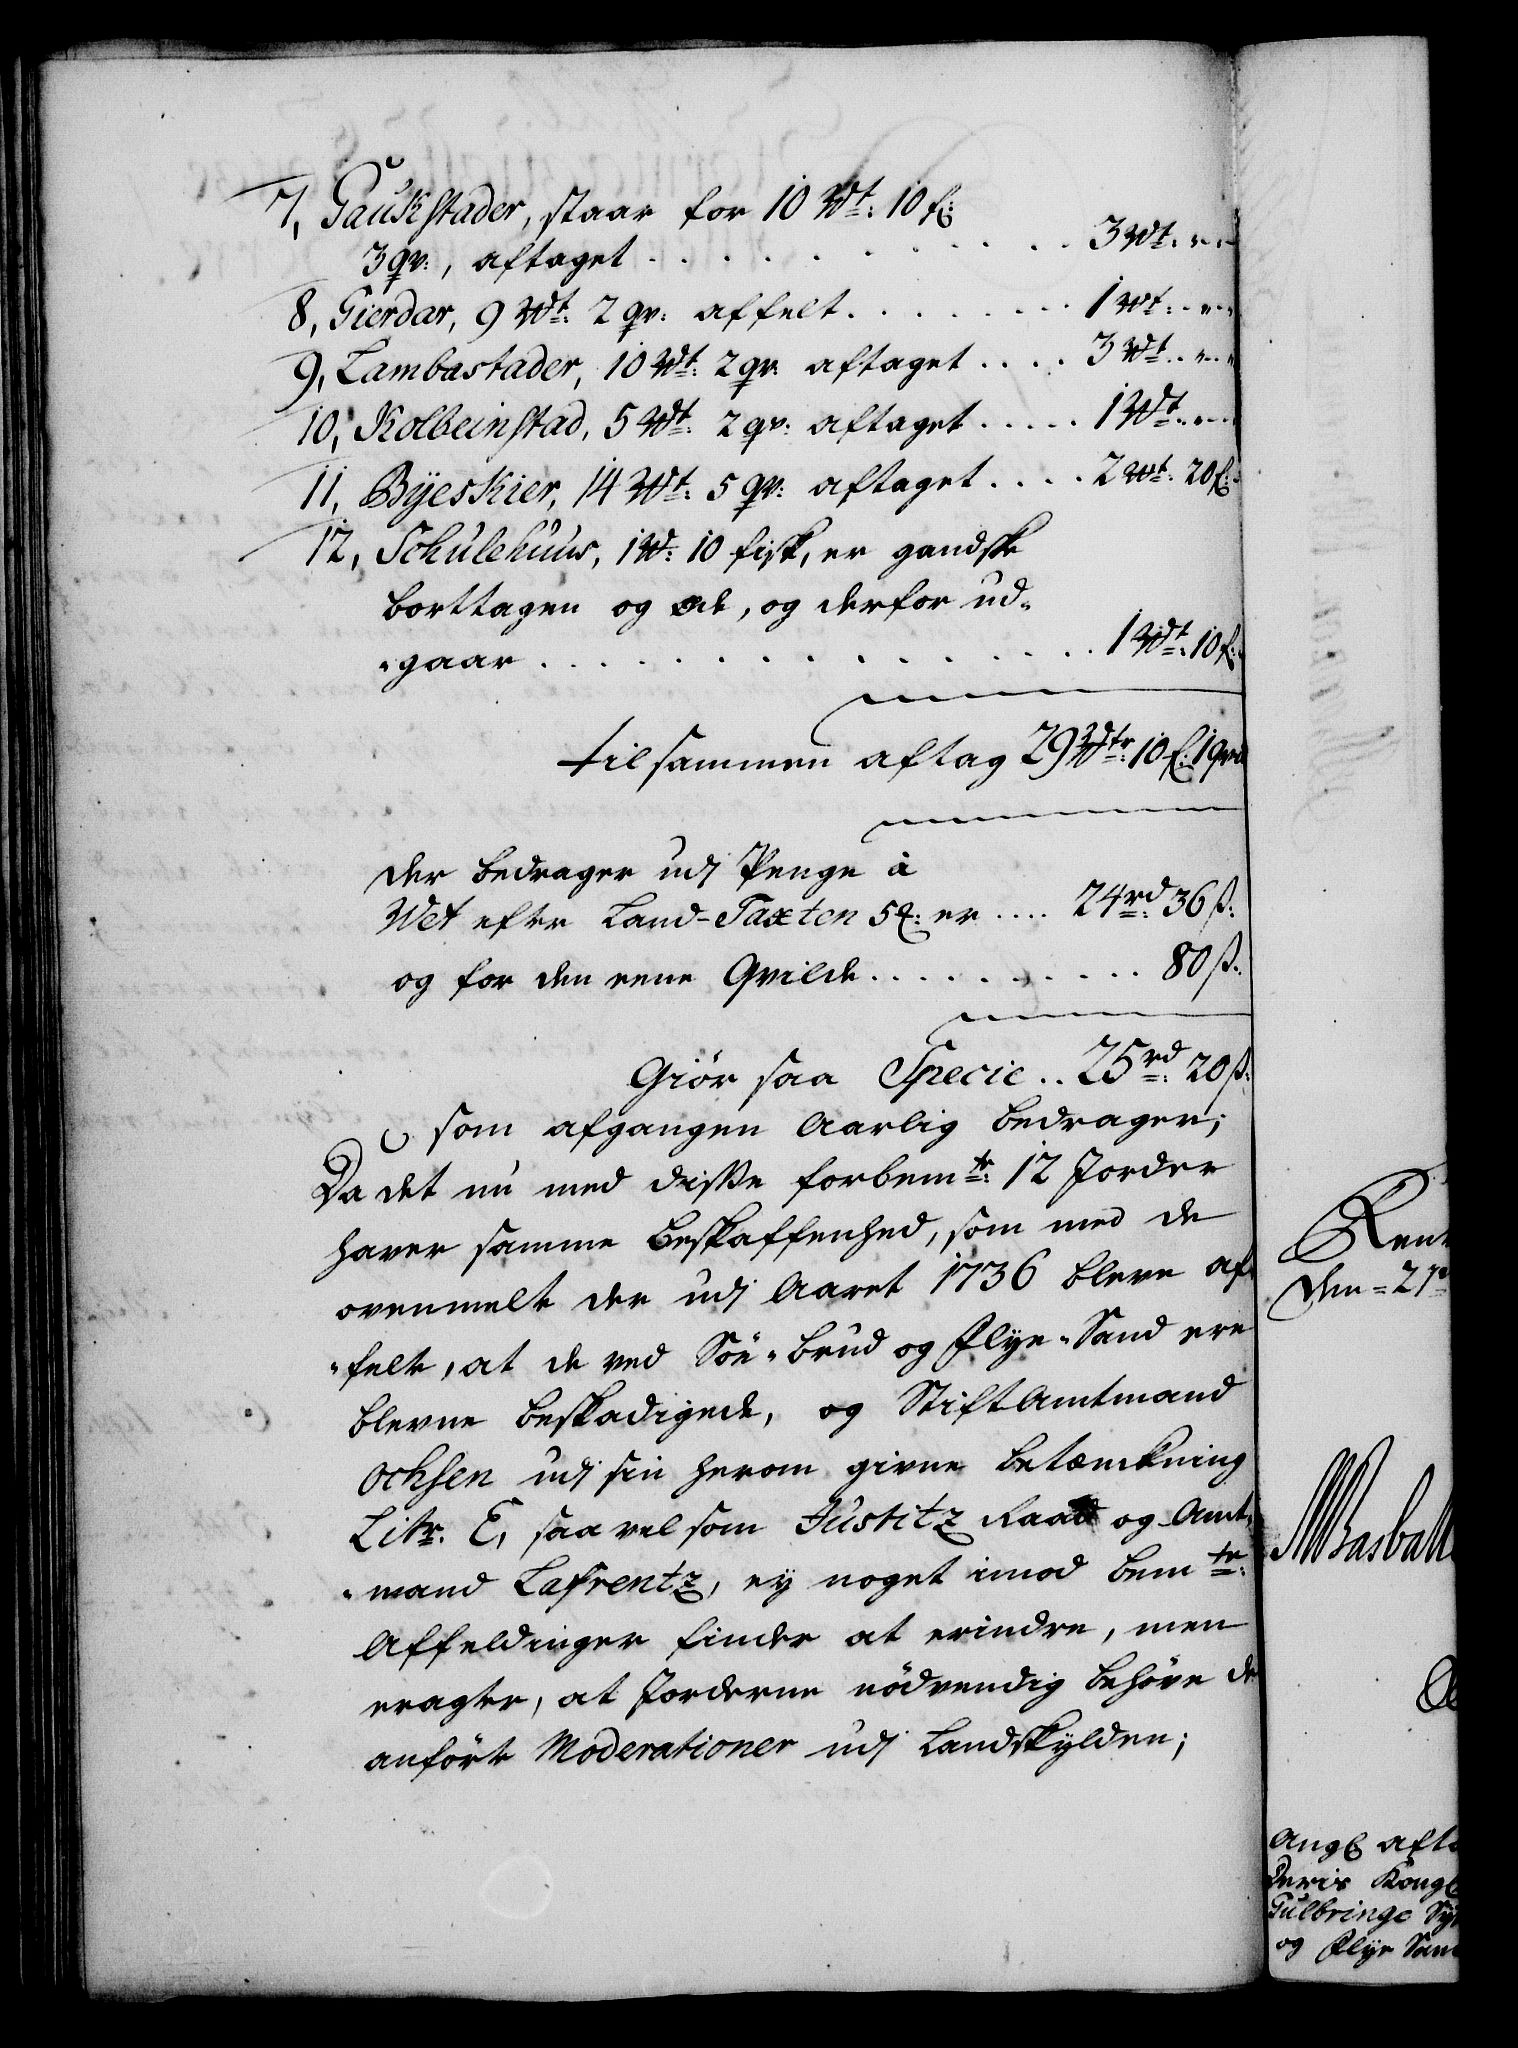 7, Gaukstader, staar for 10 Wdt: 10 f:
3 qv:, aftaget . . . . . . . . 3 Wdt: " "
8, Gierdar, 9 Wdt: 2 qv: affelt . . . . . . 1 Wdt: " "
9, Lambastader, 10 Wdt: 2 qv: aftaget . . . . 3 Wdt: " "
10, Kolbeinstad, 5 Wdt: 2 qv: aftaget . . . . . 1 Wdt: " "
11, Byeskier, 14 Wdt: 5 qv: aftaget . . . . 2 Wdt: 20 f:
12, Schulehuus, 1 Wd: 10 fisk, er gandske
borttagen og øde, og derfor ud-
-gaar . . . . . . . . . . . . . . . 1 Wdt: 10 f:
tilsammen aftag 29 Wdtr: 10 f: 1 qvild
der bedrager udj Penge à
Wet efter Land-Taxten 5 ꝶ: er .... 24 rd: 36 ß:
og for den eene Qvilde . . . . . . . . . . . 80 ß:
Giør saa Specie .. 25 rd: 20 ß:
som afgangen Aarlig bedrager;
Da det nu med disse forbemte: 12 Jorder
haver samme beskaffenhed, som med de
ovenmelte der udj Aaret 1736 bleve af-
-felte, at de ved Søe-brud og Flye-Sand ere
blevne beskadigede, og Stiftamtmand
Ochsen udj sin herom givne betænckning
Litr. E, saavelsom Justitz Raad og Amt-
-mand Lafrentz, ey noget imod bemte:
Affeldinger finder at erindre, men
eragter, at Jorderne nødvendig behøve de
anførte Moderationer udj Landskylden;
Rent
Den 27
Ang: aft
Deris Kongl
Gulbringe Sy
og Flye San